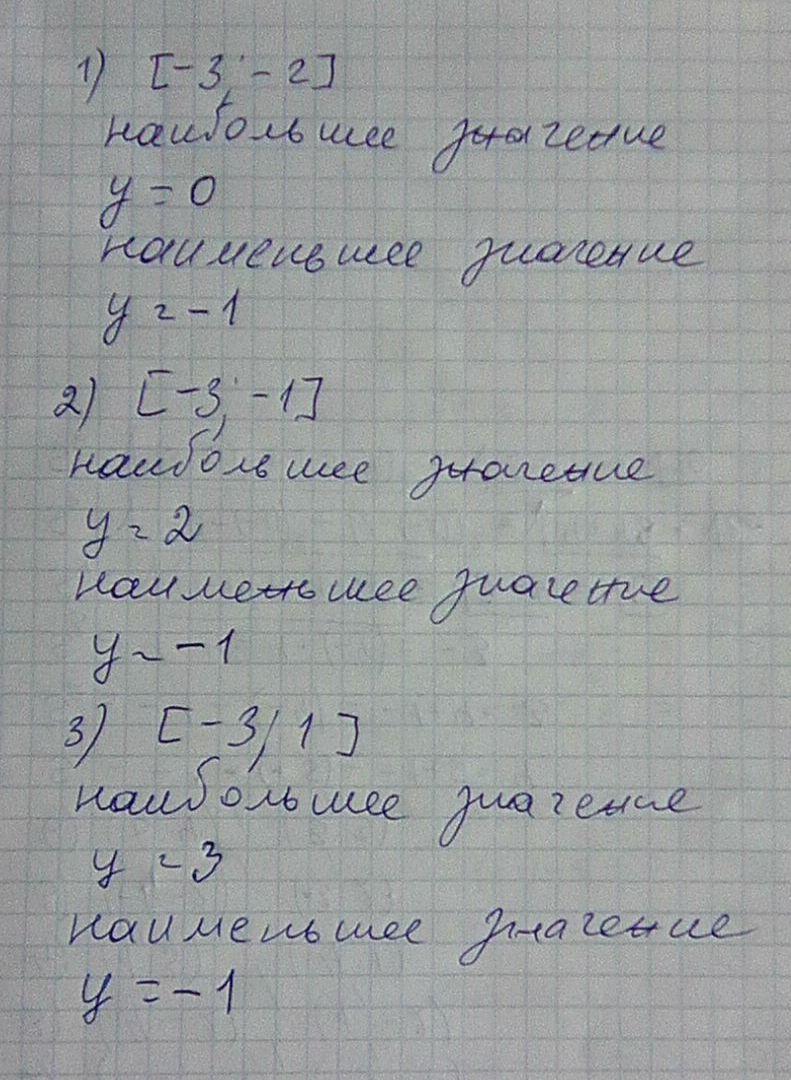 1) [-3; -2]
наибольшее значение
y = 0
наименьшее значение
y = -1
2) [-3; -1]
наибольшее значение
y = 2
наименьшее значение
y = -1
3) [-3; 1]
наибольшее значение
y = 3
наименьшее значение
y = -1